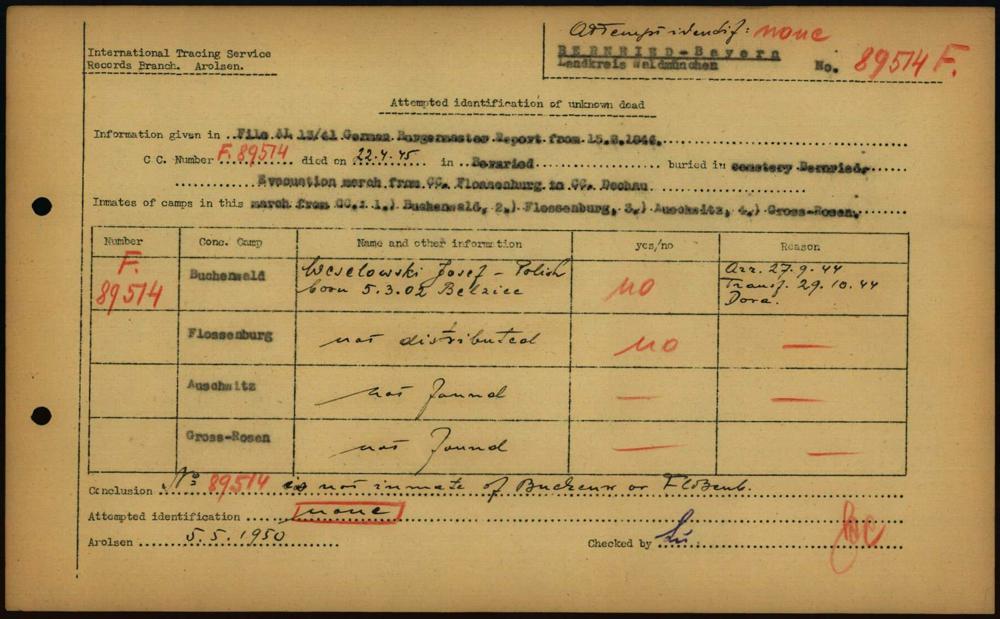 Attempt identif: none
International Tracing Service
Records Branch. Arolsen.
BERNRIED-Bayern
Landkreis Waldmünchen
No. 89514 F.
Attempted identification of unknown dead
Information given in File AL 13/41 German Burgermaster Report from 15.8.1946.
CC. Number F. 89514 died on 22.4.45 in Bernried buried in cemetery Bernried.
Evacuation march from CC. Flossenburg to CC. Dachau
Inmates of camps in this march from CC.: 1.) Buchenwald, 2.) Flossenburg, 3.) Auschwitz, 4.) Gross-Rosen.
Number Conc. Camp Name and other information yes/no Reason
F. 89514 Buchenwald Weselowski Josef - Polish no Arr. 27.9.44
born 5.3.02 Belziec Transf. 29.10.44
Dora.
Flossenburg not distributed no —
Auschwitz not found — —
Gross-Rosen not found — —
Conclusion No 89514 is not inmate of Buchenw or Floßenb.
Attempted identification none
Arolsen 5.5.1950 Checked by